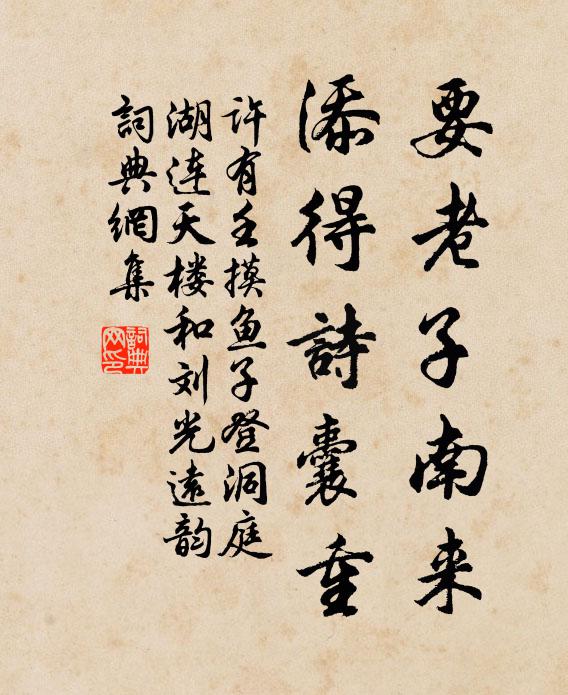 要老子南来
添得詩囊重
许有壬摸鱼子登洞庭
湖连天楼和刘光遠韵
詞典網集
詞典网印